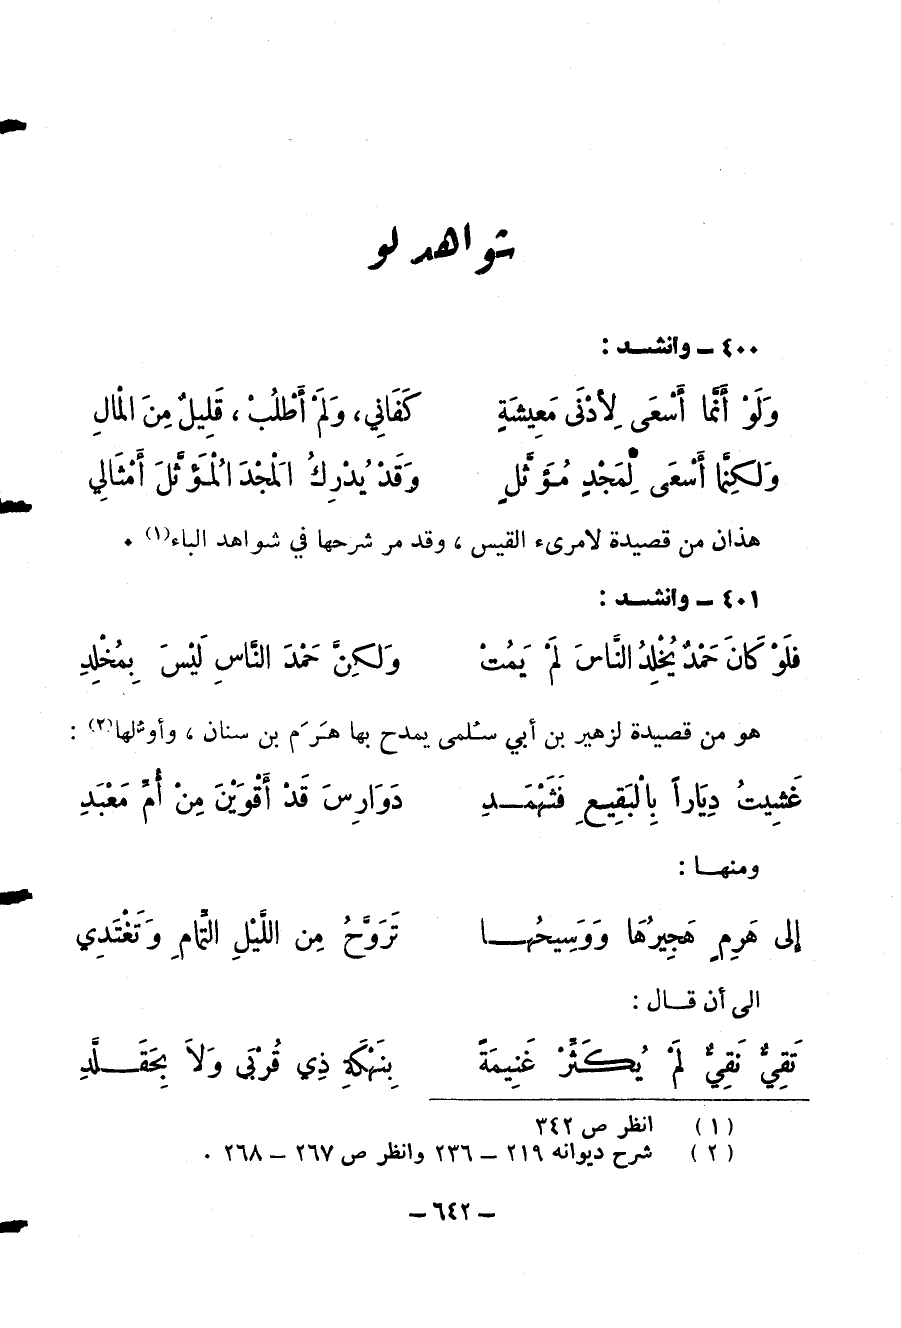 شواهد لو
٤٠٠ – وانشد :
وَلَوْ أَنَّمَا أَسْعَى لِأَدْنَى مَعِيشَةٍ كَفَانِي، وَلَمْ أَطْلُبْ ، قَلِيلٌ مِنَ الْمَالِ
وَلَكِنَّمَا أَسْعَى لِمَجْدٍ مُؤَثَّلٍ وَقَدْ يُدْرِكُ الْمَجْدَ الْمُؤَثَّلَ أَمْثَالِي
هذان من قصيدة لامرىء القيس ، وقد مر شرحها في شواهد الباء(١) .
٤٠١ – وانشد :
فَلَوْ كَانَ حَمْدٌ يُخْلِدُ النَّاسَ لَمْ يَمُتْ وَلَكِنَّ حَمْدَ النَّاسِ لَيْسَ بِمُخْلِدِ
هو من قصيدة لزهير بن أبي سُلمى يمدح بها هَرَم بن سنان ، وأوّلها(٢) :
غَشِيتُ دِيَاراً بِالْبَقِيعِ فَثَهْمَدِ دَوَارِسَ قَدْ أَقْوَيْنَ مِنْ أُمِّ مَعْبَدِ
ومنها :
إلى هَرِمٍ هَجِيرُهَا وَوَسِيجُهَا تَرَوَّحُ مِن اللَّيْلِ التِّمَامِ وَتَغْتَدِي
الى أن قال :
تَقِيٌّ نَقِيٌّ لَمْ يُكَثِّرْ غَنِيمَةً بِنَهْكَةِ ذِي قُرْبَى وَلاَ بِحَقَلَّدِ
(١) انظر ص ٣٤٢
(٢) شرح ديوانه ٢١٩ – ٢٣٦ وانظر ص ٢٦٧ – ٢٦٨ .
– ٦٤٢ –